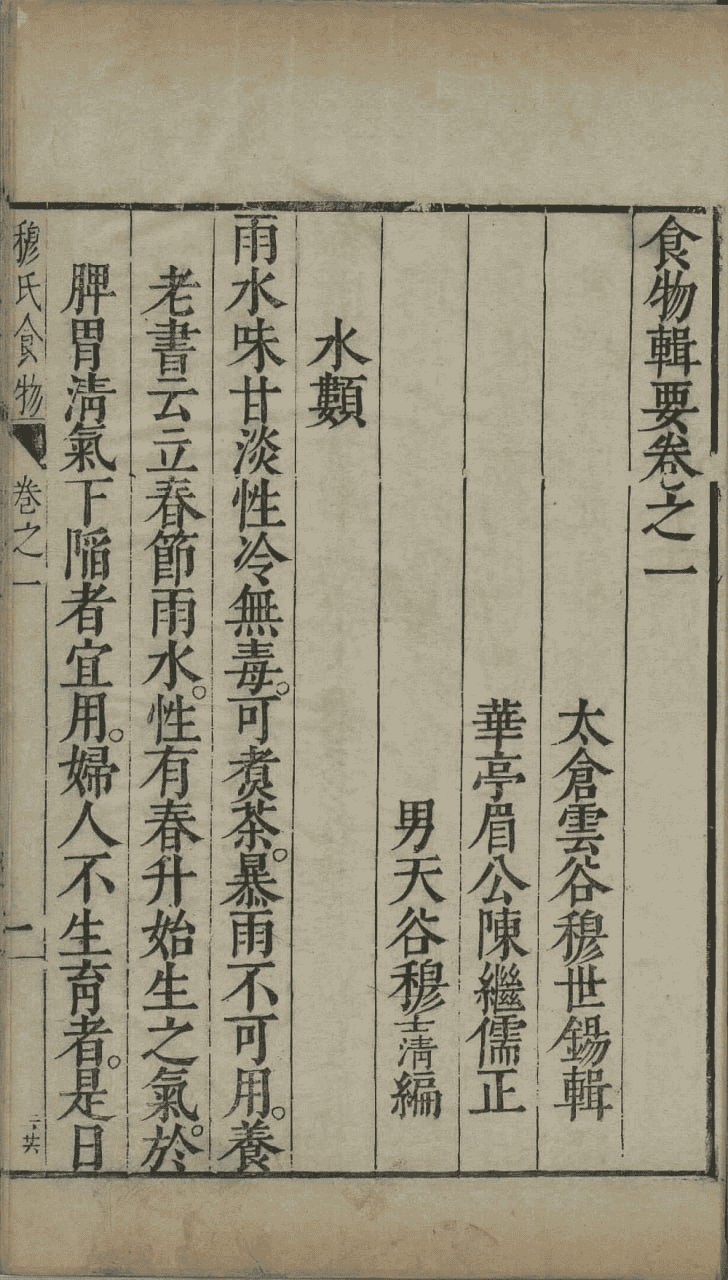 食物輯要卷之一
太倉雲谷穆世錫輯
華亭眉公陳繼儒正
男天谷穆士清編
水類
雨水味甘淡性冷無毒。可煑茶。暴雨不可用。養
老書云立春節雨水。性有春升始生之氣。於
脾胃淸氣下陷者宜用。婦人不生育者。是日
穆氏食物 卷之一 一